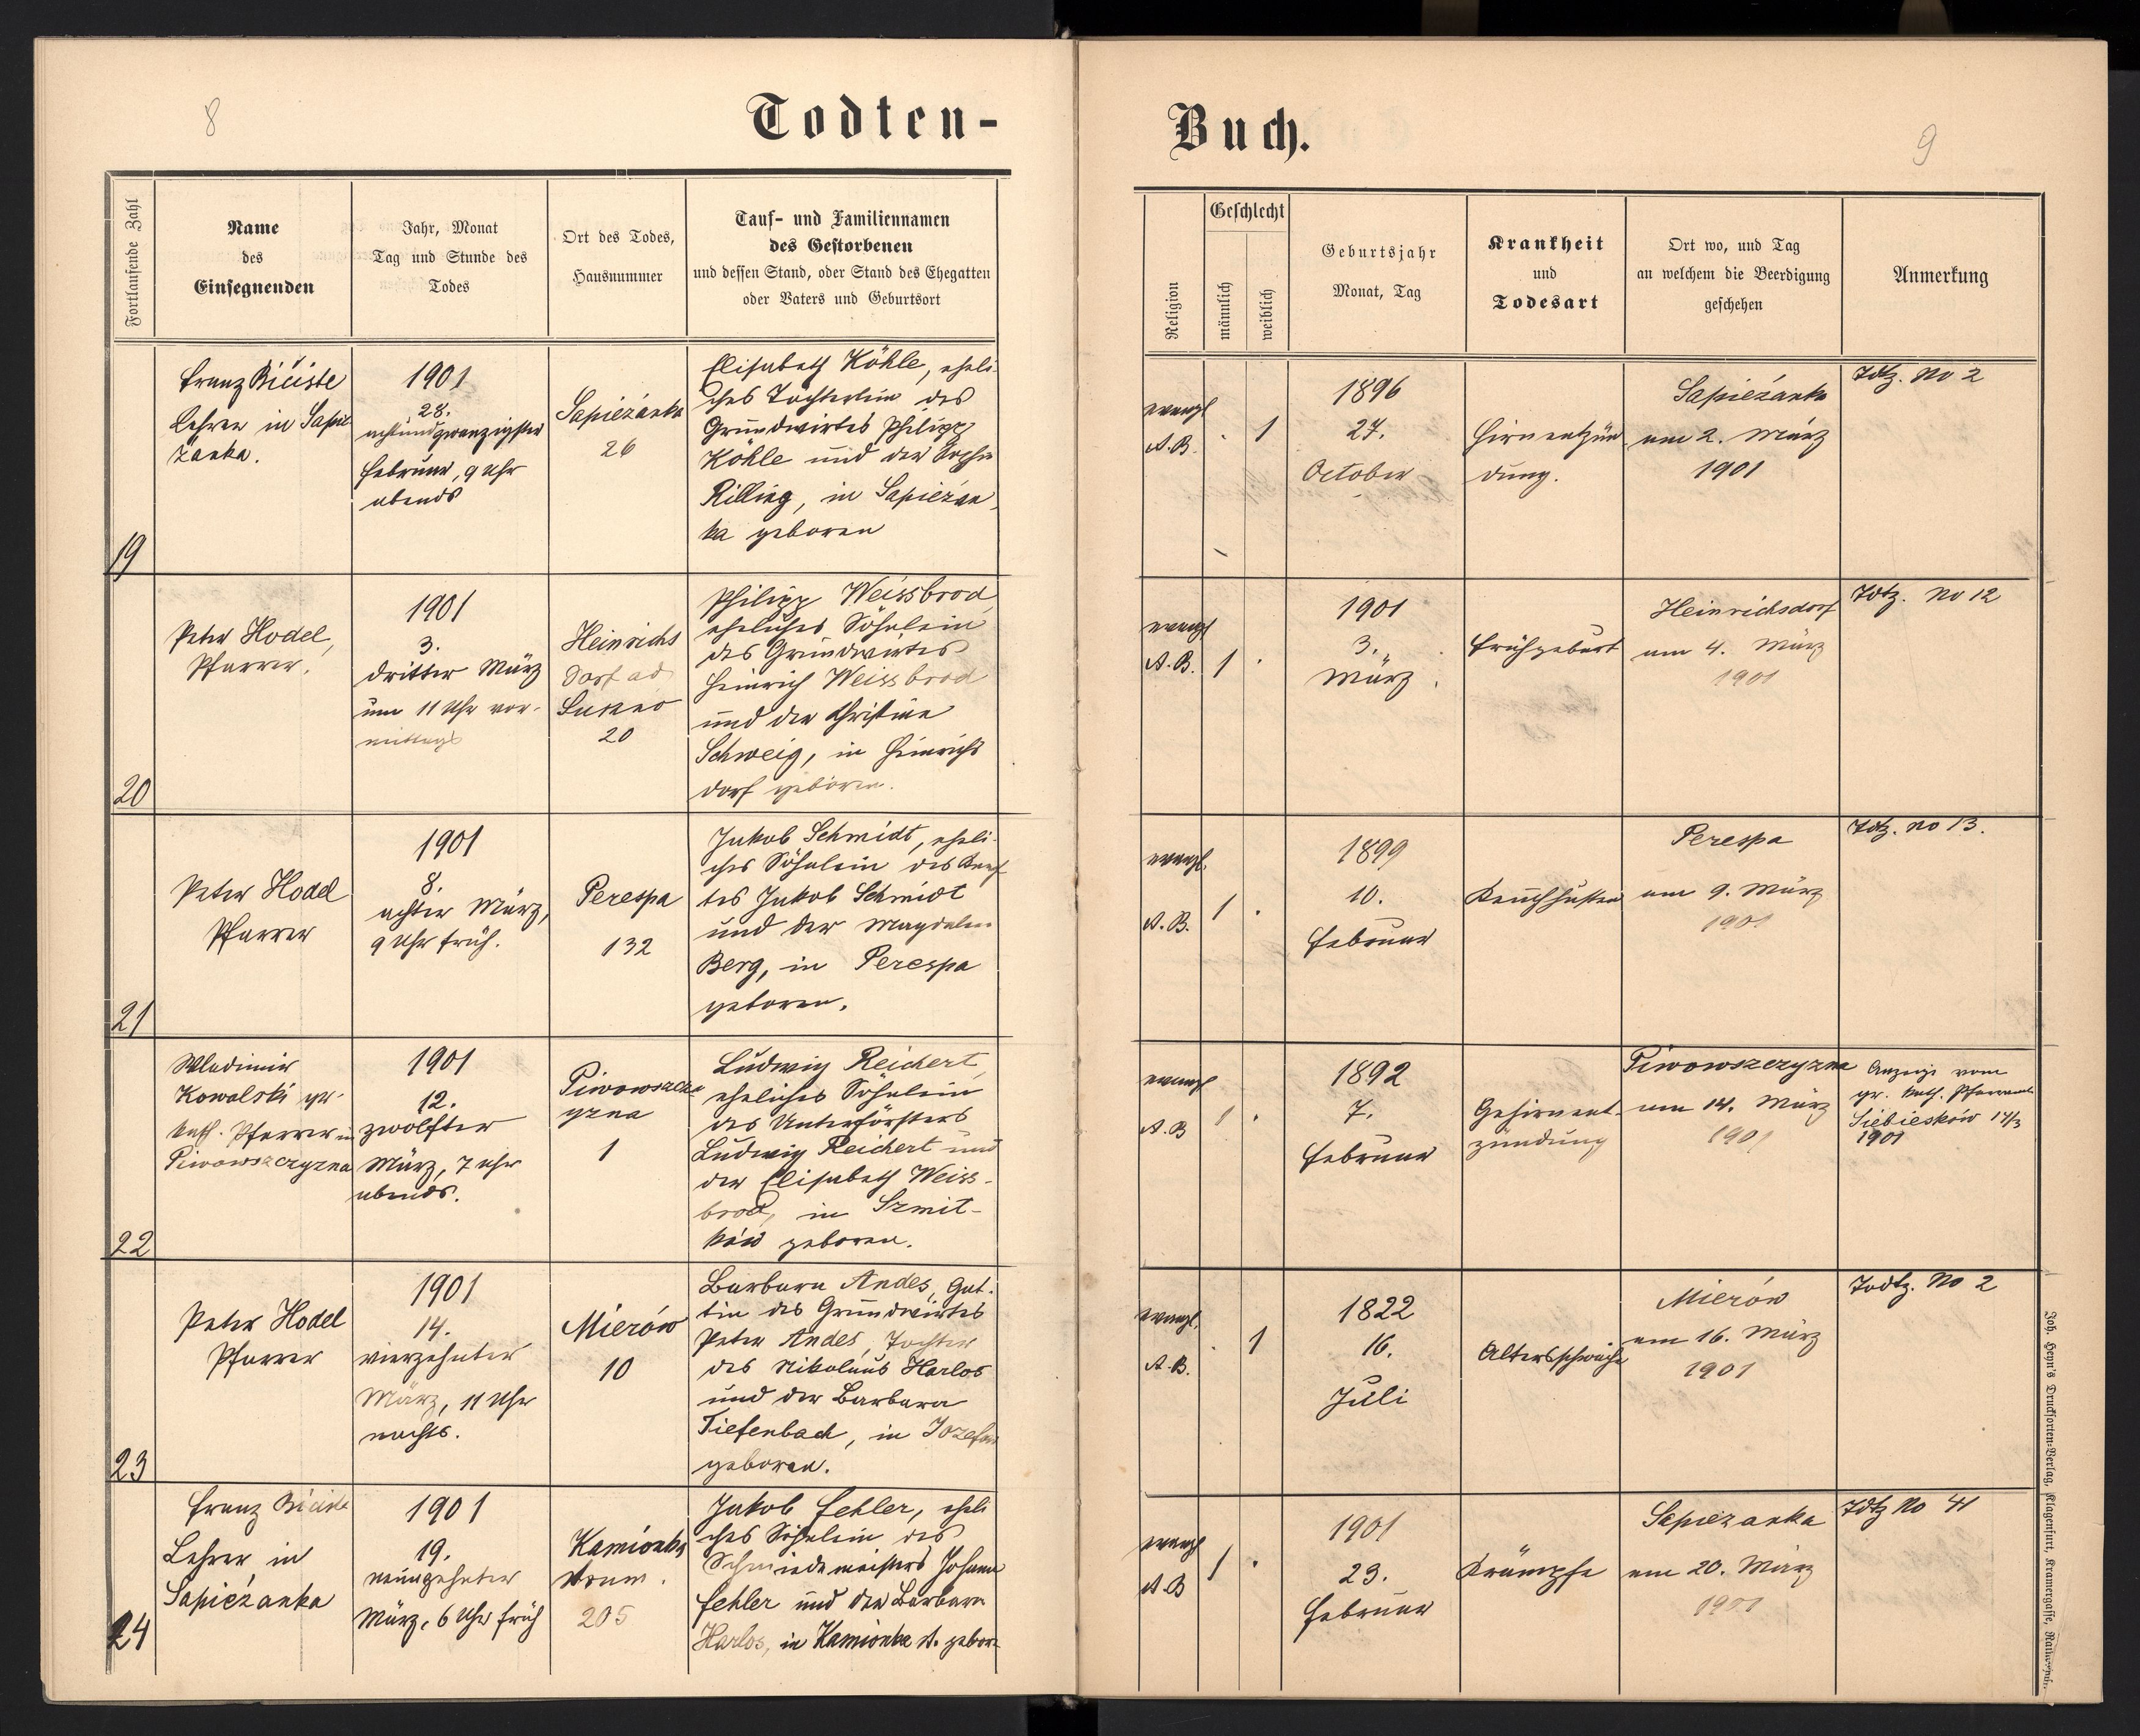 8
Todten-
Fortlaufende Zahl
Name
des
Einsegnenden
Jahr, Monat
Tag und Stunde des
Todes
Ort des Todes,
Hausnummer
Tauf- und Familiennamen
des Gestorbenen
und dessen Stand, oder Stand des Ehegatten
oder Vaters und Geburtsort
19
Franz
Lehrer in Sapie
żanka.
1901
28.
achtundzwanzigster
Februar, 9 Uhr
abends
Sapieżanka
26
Elisabeth Köhle, eheli
ches Töchterlein des
Grundwirtes Philipp
Köhle und der Sophie
Rilling, in Sapieżan
ka geboren
20
Peter Hodel,
Pfarrer.
1901
3.
dritter März
um 11 Uhr vor-
mittags
Heinrichs
dorf ad
20
Philipp Weissbrod,
eheliches Söhnlein
des Grundwirtes
Heinrich Weissbrod
und der Christine
Schweig, in Heinrichs
dorf geboren.
21
Peter Hodel
Pfarrer
1901
8.
achter März,
9 Uhr früh.
Perespa
132
Jakob Schmidt, eheli-
ches Söhnlein des Knech
tes Jakob Schmidt
und der Magdalena
Berg, in Perespa
geboren.
22
Wladimir
Kowalski gr.
kath. Pfarrer in
Piwowszczyzna
1901
12.
zwölfter
März, 7 Uhr
abends.
Piwowszcz
yzna
1
Ludwig Reichert,
eheliches Söhnlein
des Unterförsters
Ludwig Reichert und
der Elisabeth Weiss-
brod, in Szmit-
ków geboren.
23
Peter Hodel
Pfarrer
1901
14.
vierzehnter
März, 11 Uhr
nachts.
Mierów
10
Barbara Andes, Gat-
tin des Grundwirtes
Peter Andes, Tochter
des Nikolaus Harlos
und der Barbara
Tiefenbach, in Józefów
geboren.
24
Franz
Lehrer in
Sapieżanka
1901
19.
neunzehnter
März, 6 Uhr früh
Kamionka
strum.
205
Jakob Fehler, eheli
ches Söhnlein des
Schmiedemeisters Johann
Fehler und der Barbara
Harlos, in Kamionka st. geboren
Buch.
9
Religion
Geschlecht
männlich
weiblich
Geburtsjahr
Monat, Tag
Krankheit
und
Todesart
Ort wo, und Tag
an welchem die Beerdigung
geschehen
Anmerkung
evangl
A.B.
1
1896
27.
October
Hirnentzün
dung.
Sapieżanka
am 2. März
1901
Tdtz. No 2
evangl
A.B.
1
1901
3.
März
Frühgeburt
Heinrichsdorf
am 4. März
1901
Tdtz. No 12
evangl.
A.B.
1
1899
10.
Februar
Keuchhusten
Perespa
am 9. März
1901
Tdtz. No 13.
evangl
A.B
1
1892
7.
Februar
Gehirnent-
zündung
Piwowszczyzna
am 14. März
1901
Anzeige vom
gr. kath. Pfarramte
14/3
1901
evangl.
A.B.
1
1822
16.
Juli
Altersschwäche
Mierów
am 16. März
1901
Todtz. No 2
evangl
A.B
1
1901
23.
Februar
Krämpfe
Sapieżanka
am 20. März
1901
Tdtz No 41
Joh. Heyn's Drucksorten-Verlag, Klagenfurt, Kramergasse,